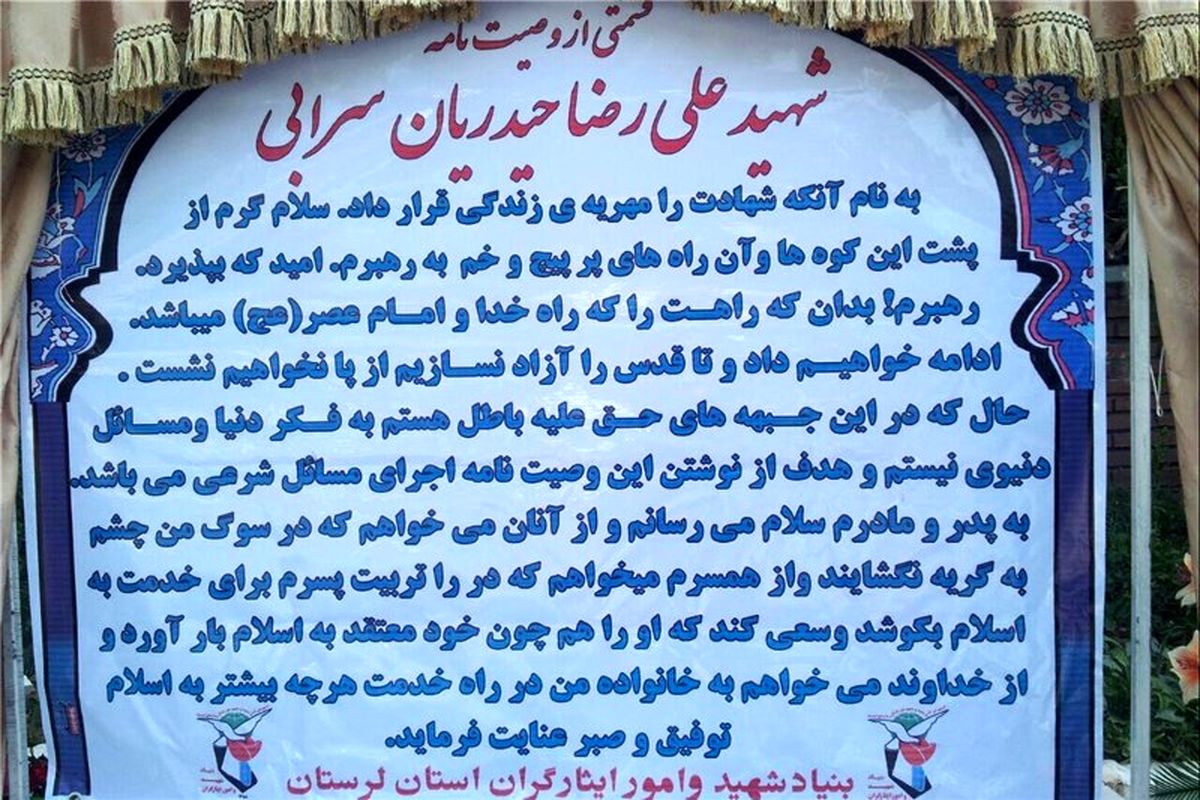 قسمتی از وصیت نامه
شهید علی رضا حیدریان سرابی
به نام آنکه شهادت را مهریه ی زندگی قرار داد. سلام گرم از
پشت این کوه ها وآن راه های پر پیچ و خم به رهبرم. امید که بپذیرد.
رهبرم! بدان که راهت را که راه خدا و امام عصر(عج) میباشد.
ادامه خواهیم داد و تا قدس را آزاد نسازیم از پا نخواهیم نشست .
حال که در این جبهه های حق علیه باطل هستم به فکر دنیا ومسائل
دنیوی نیستم و هدف از نوشتن این وصیت نامه اجرای مسائل شرعی می باشد.
به پدر و مادرم سلام می رسانم و از آنان می خواهم که در سوگ من چشم
به گریه نگشایند واز همسرم میخواهم که در را تربیت پسرم برای خدمت به
اسلام بکوشد وسعی کند که او را هم چون خود معتقد به اسلام بار آورد و
از خداوند می خواهم به خانواده من در راه خدمت هرچه بیشتر به اسلام
توفیق و صبر عنایت فرماید.
بنیاد شهید وامور ایثارگران استان لرستان